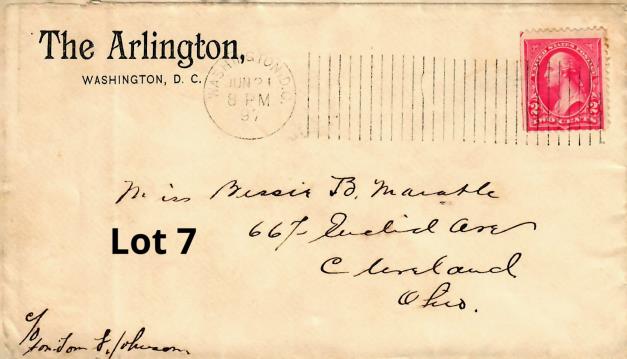 The Arlington,
WASHINGTON, D. C.
WASHINGTON, D.C.
JUN 21
8 PM
97
UNITED STATES POSTAGE
2 TWO CENTS 2
Miss Bessie B.
Lot 7
667 Euclid Ave
Cleveland
Ohio.
c/o
Hon Tom L. Johnson